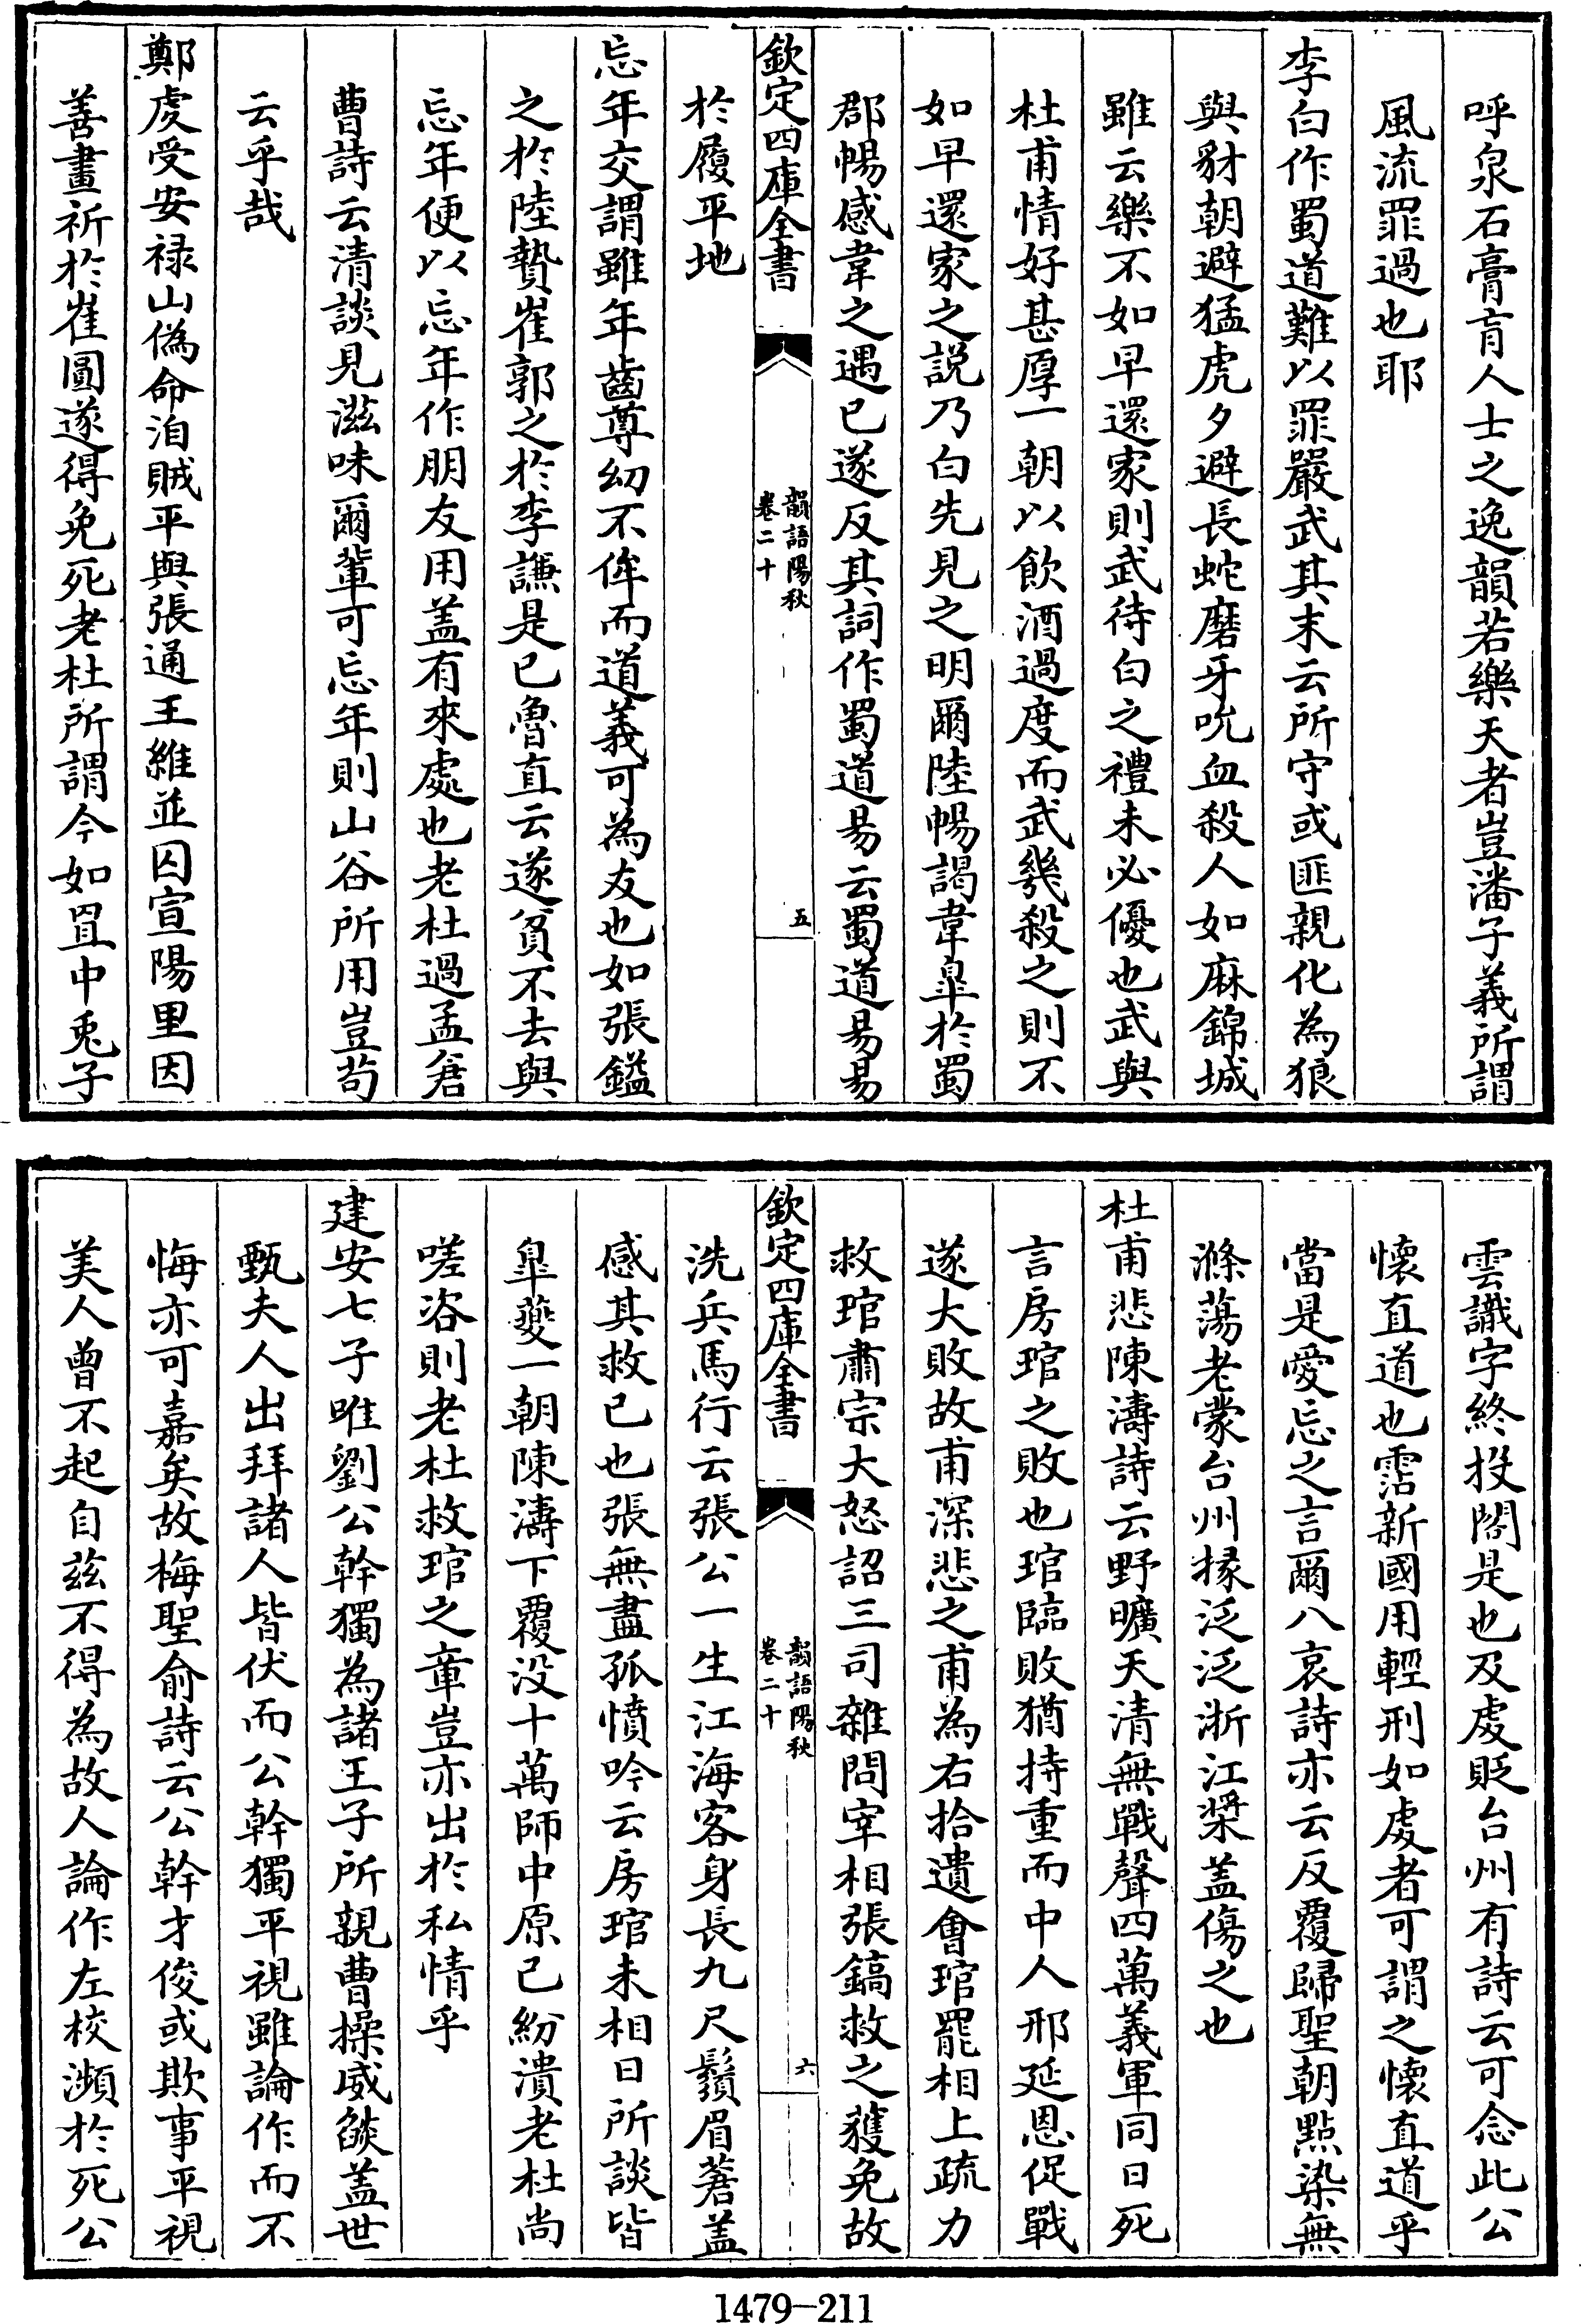 呼泉石膏肓人士之逸韻若樂天者豈潘子義所謂
風流罪過也耶
李白作蜀道難以罪嚴武其末云所守或匪親化為狼
與豺朝避猛虎夕避長蛇磨牙吮血殺人如麻錦城
雖云樂不如早還家則武待白之禮未必優也武與
杜甫情好甚厚一朝以飲酒過度而武幾殺之則不
如早還家之説乃白先見之明爾陸暢謁韋臯於蜀
郡暢感韋之遇已遂反其詞作蜀道易云蜀道易易
欽定四庫全書
韻語陽秋
卷二十
五
於履平地
忘年交謂雖年齒尊幼不侔而道義可為友也如張鎰
之於陸贄崔郭之於李謙是已魯直云遂貧不去與
忘年便以忘年作朋友用盖有來處也老杜過孟倉
曹詩云清談見滋味爾輩可忘年則山谷所用豈苟
云乎哉
鄭虔受安禄山偽命洎賊平與張通王維並囚宣陽里因
善畫祈於崔圓遂得免死老杜所謂今如罝中兎子
雲識字終投閣是也及虔貶台州有詩云可念此公
懷直道也霑新國用輕刑如虔者可謂之懷直道乎
當是愛忘之言爾八哀詩亦云反覆歸聖朝點染無
滌蕩老蒙台州掾泛泛浙江槳盖傷之也
杜甫悲陳濤詩云野曠天清無戰聲四萬義軍同日死
言房琯之敗也琯臨敗猶持重而中人邢延恩促戰
遂大敗故甫深悲之甫為右拾遺會琯罷相上疏力
救琯肅宗大怒詔三司雜問宰相張鎬救之獲免故
欽定四庫全書
韻語陽秋
卷二十
六
洗兵馬行云張公一生江海客身長九尺鬚眉蒼盖
感其救已也張無盡孤憤吟云房琯未相日所談皆
臯夔一朝陳濤下覆没十萬師中原已紛潰老杜尚
嗟咨則老杜救琯之章豈亦出於私情乎
建安七子唯劉公幹獨為諸王子所親曹操威燄盖世
甄夫人出拜諸人皆伏而公幹獨平視雖論作而不
悔亦可嘉矣故梅聖俞詩云公幹才俊或欺事平視
美人曾不起自兹不得為故人論作左校瀕於死公
1479-211